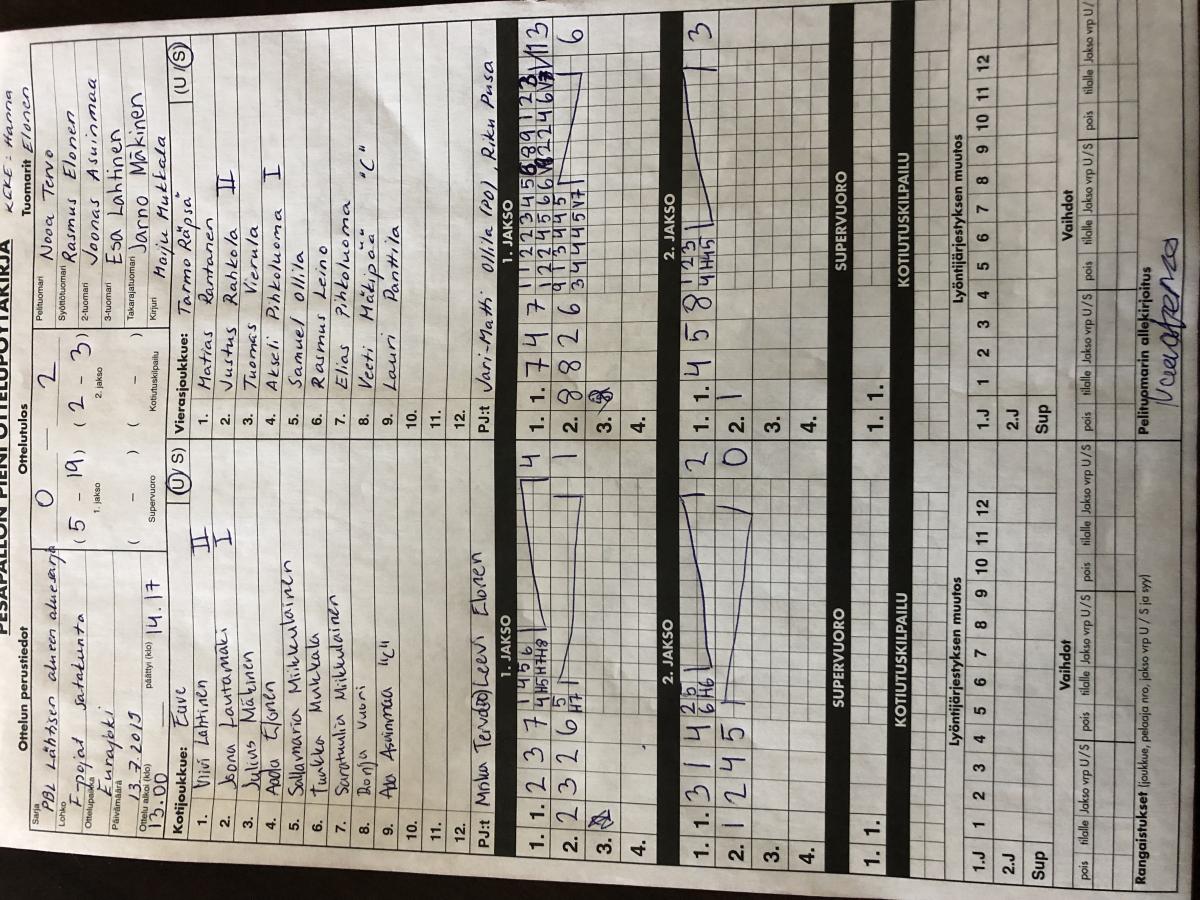 KEKE: Hanna
PESÄPALLON PIENI OTTELUPÖYTÄKIRJA
Ottelun perustiedot
Ottelutulos
Tuomarit Elonen
Sarja
PBL Läntisen alueen aluesarja
0 2
Pelituomari Nooa Tervo
Lohko
F-pojat satakunta
(5 - 19) (2 - 3)
1. jakso 2. jakso
Syöttötuomari Rasmus Elonen
Ottelupaikka
Eurajoki
2-tuomari Joonas Asuinmaa
3-tuomari Esa Lahtinen
Päivämäärä
13.7.2019
( - ) ( - )
Supervuoro Kotiutuskilpailu
Takarajatuomari Jarno Mäkinen
Ottelu alkoi (klo) 13.00
päättyi (klo) 14.17
Kirjuri Maiju Mukkala
Kotijoukkue: Euve (U/S)
Vierasjoukkue: Tarmo Räpsä (U/S)
1. Viivi Lahtinen II
1. Matias Rantanen
2. Joona Lautamäki I
2. Justus Rahkola II
3. Julius Mäkinen
3. Tuomas Vierula
4. Aada Elonen
4. Akseli Pihkoluoma I
5. Sallamaria Miikkulainen
5. Samuel Ollila
6. Tuukka Mukkala
6. Rasmus Leino
7. Saratuulia Miikkulainen
7. Elias Pihkoluoma
8. Ronja Vuori
8. Veeti Mäkipää "C"
9. Ada Asuinmaa "C"
9. Lauri Panttila
10.
10.
11.
11.
12.
12.
PJ:t Mika Tervo Leevi Elonen
PJ:t Jari-Matti Ollila (PO), Riku Pusa
1. JAKSO
1. JAKSO
1. 1. 2 3 7 1 4 5 6 4
4 H5 H7 H8
1. 1. 7 4 7
13
2. 2 3 2 6 5 1
H7
2. 8 8 2 6
6
3.
3.
4.
4.
2. JAKSO
2. JAKSO
1. 1. 3 1 4 2 5 2
6 H6
1. 1. 4 5 8 1 2 3 3
4 H4 5
2. 1 2 4 5 0
2. 1
3.
3.
4.
4.
SUPERVUORO
SUPERVUORO
1. 1.
1. 1.
KOTIUTUSKILPAILU
KOTIUTUSKILPAILU
Lyöntijärjestyksen muutos
Lyöntijärjestyksen muutos
1.J 1 2 3 4 5 6 7 8 9 10 11 12
1.J 1 2 3 4 5 6 7 8 9 10 11 12
2.J
2.J
Sup
Sup
Vaihdot
Vaihdot
pois tilalle Jakso vrp U/S pois tilalle Jakso vrp U/S pois tilalle Jakso vrp U/S
pois tilalle Jakso vrp U/S pois tilalle Jakso vrp U/S pois tilalle Jakso vrp U/
Rangaistukset (joukkue, pelaaja nro, jakso vrp U / S ja syy)
Pelituomarin allekirjoitus